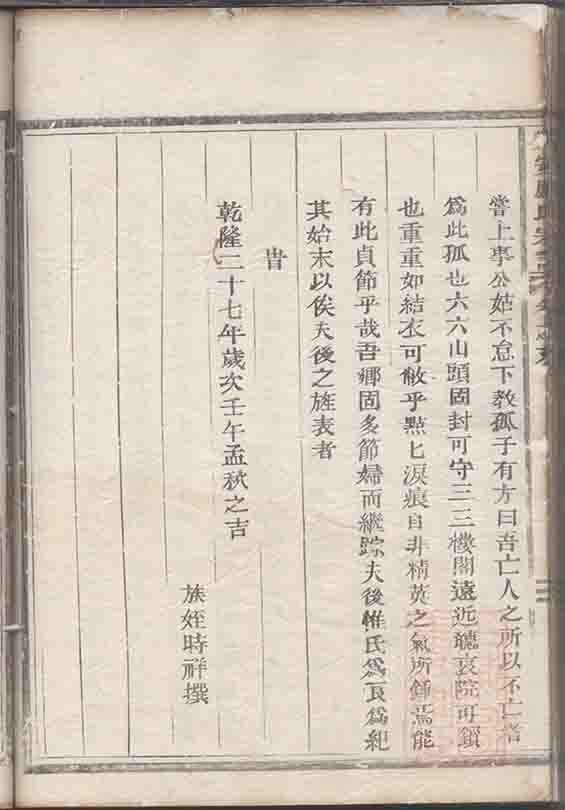 甞上事公姑不怠下教孤子有方曰吾亡人之所以不亡者
爲此孤也六六山頭固封可守三三樓閣遠近聽哀院可鎖
也重重如結衣可敝乎點匕淚痕自非精英之氣所鍾焉能
有此貞節乎哉吾鄉固多節婦而繼踪夫後惟氏爲艮爲紀
其始末以俟夫後之旌表者
旹
乾隆二十七年歲次壬午孟秋之吉
族姪時祥撰